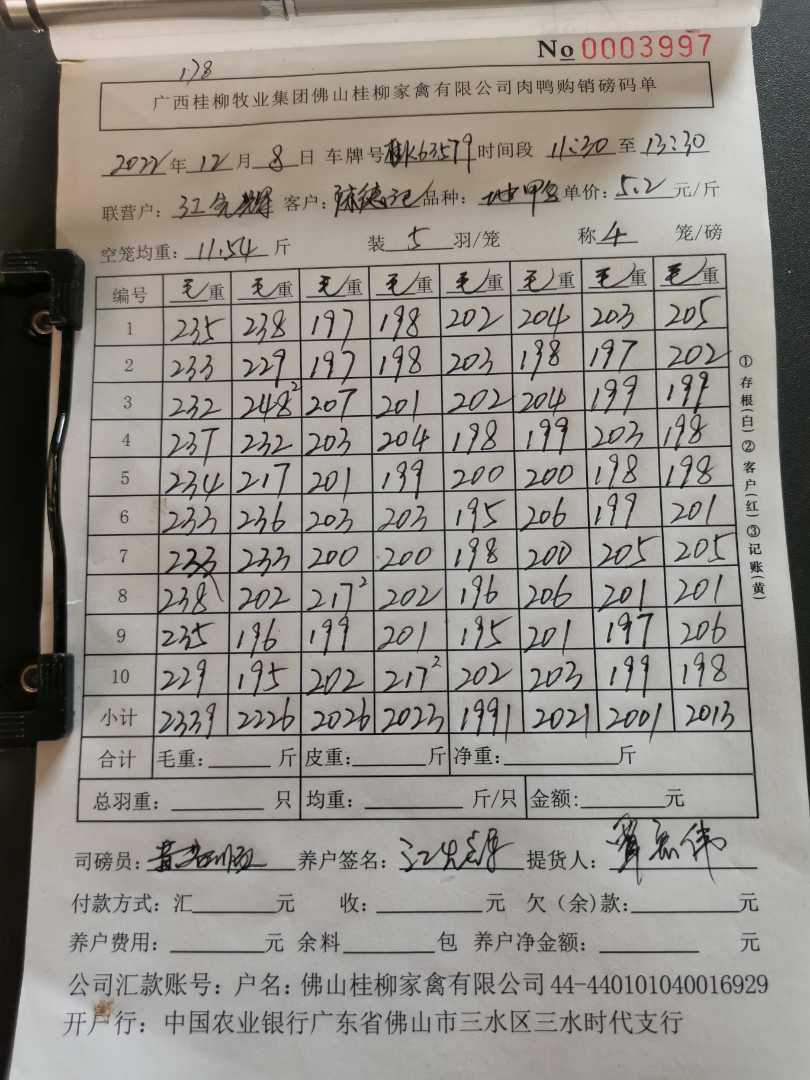 No 0003997
178
广西桂柳牧业集团佛山桂柳家禽有限公司肉鸭购销磅码单
2022年12月8日 车牌号桂K63579时间段 11:30至13:30
联营户: 客户: 陈德记 品种: 单价: 5.2元/斤
空笼均重: 11.54 斤 装 5 羽/笼 称 4 笼/磅
编号 毛重 毛重 毛重 毛重 毛重 毛重 毛重 毛重
1 235 238 197 198 202 204 203 205
2 233 229 197 198 203 198 197 202
3 232 248² 207 201 202 204 199 199
4 237 232 203 204 198 199 203 198
5 234 217 201 199 200 200 198 198
6 233 236 203 203 195 206 199 201
7 233 233 200 200 198 200 205 205
8 238 202 217² 202 196 206 201 201
9 235 196 199 201 195 201 197 206
10 229 195 202 217² 202 203 199 198
小计 2339 2226 2026 2023 1991 2021 2001 2013
合计 毛重: 斤 皮重: 斤 净重: 斤
总羽重: 只 均重: 斤/只 金额: 元
①存根(白)②客户(红)③记账(黄)
司磅员: 养户签名: 提货人:
付款方式: 汇 元 收: 元 欠(余)款: 元
养户费用: 元 余料 包 养户净金额: 元
公司汇款账号: 户名: 佛山桂柳家禽有限公司 44-440101040016929
开户行: 中国农业银行广东省佛山市三水区三水时代支行